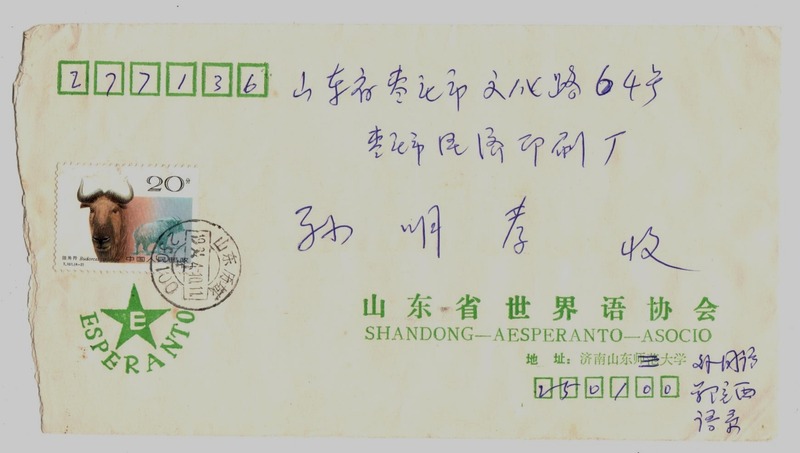 277136
山东省枣庄市文化路64号
枣庄市民源印刷厂
孙明孝 收
20分
中国人民邮政
山东历城
250100
E
ESPERANTO
山东省世界语协会
SHANDONG—AESPERANTO—ASOCIO
地 址: 济南山东大学
外国语
西
语系
250100